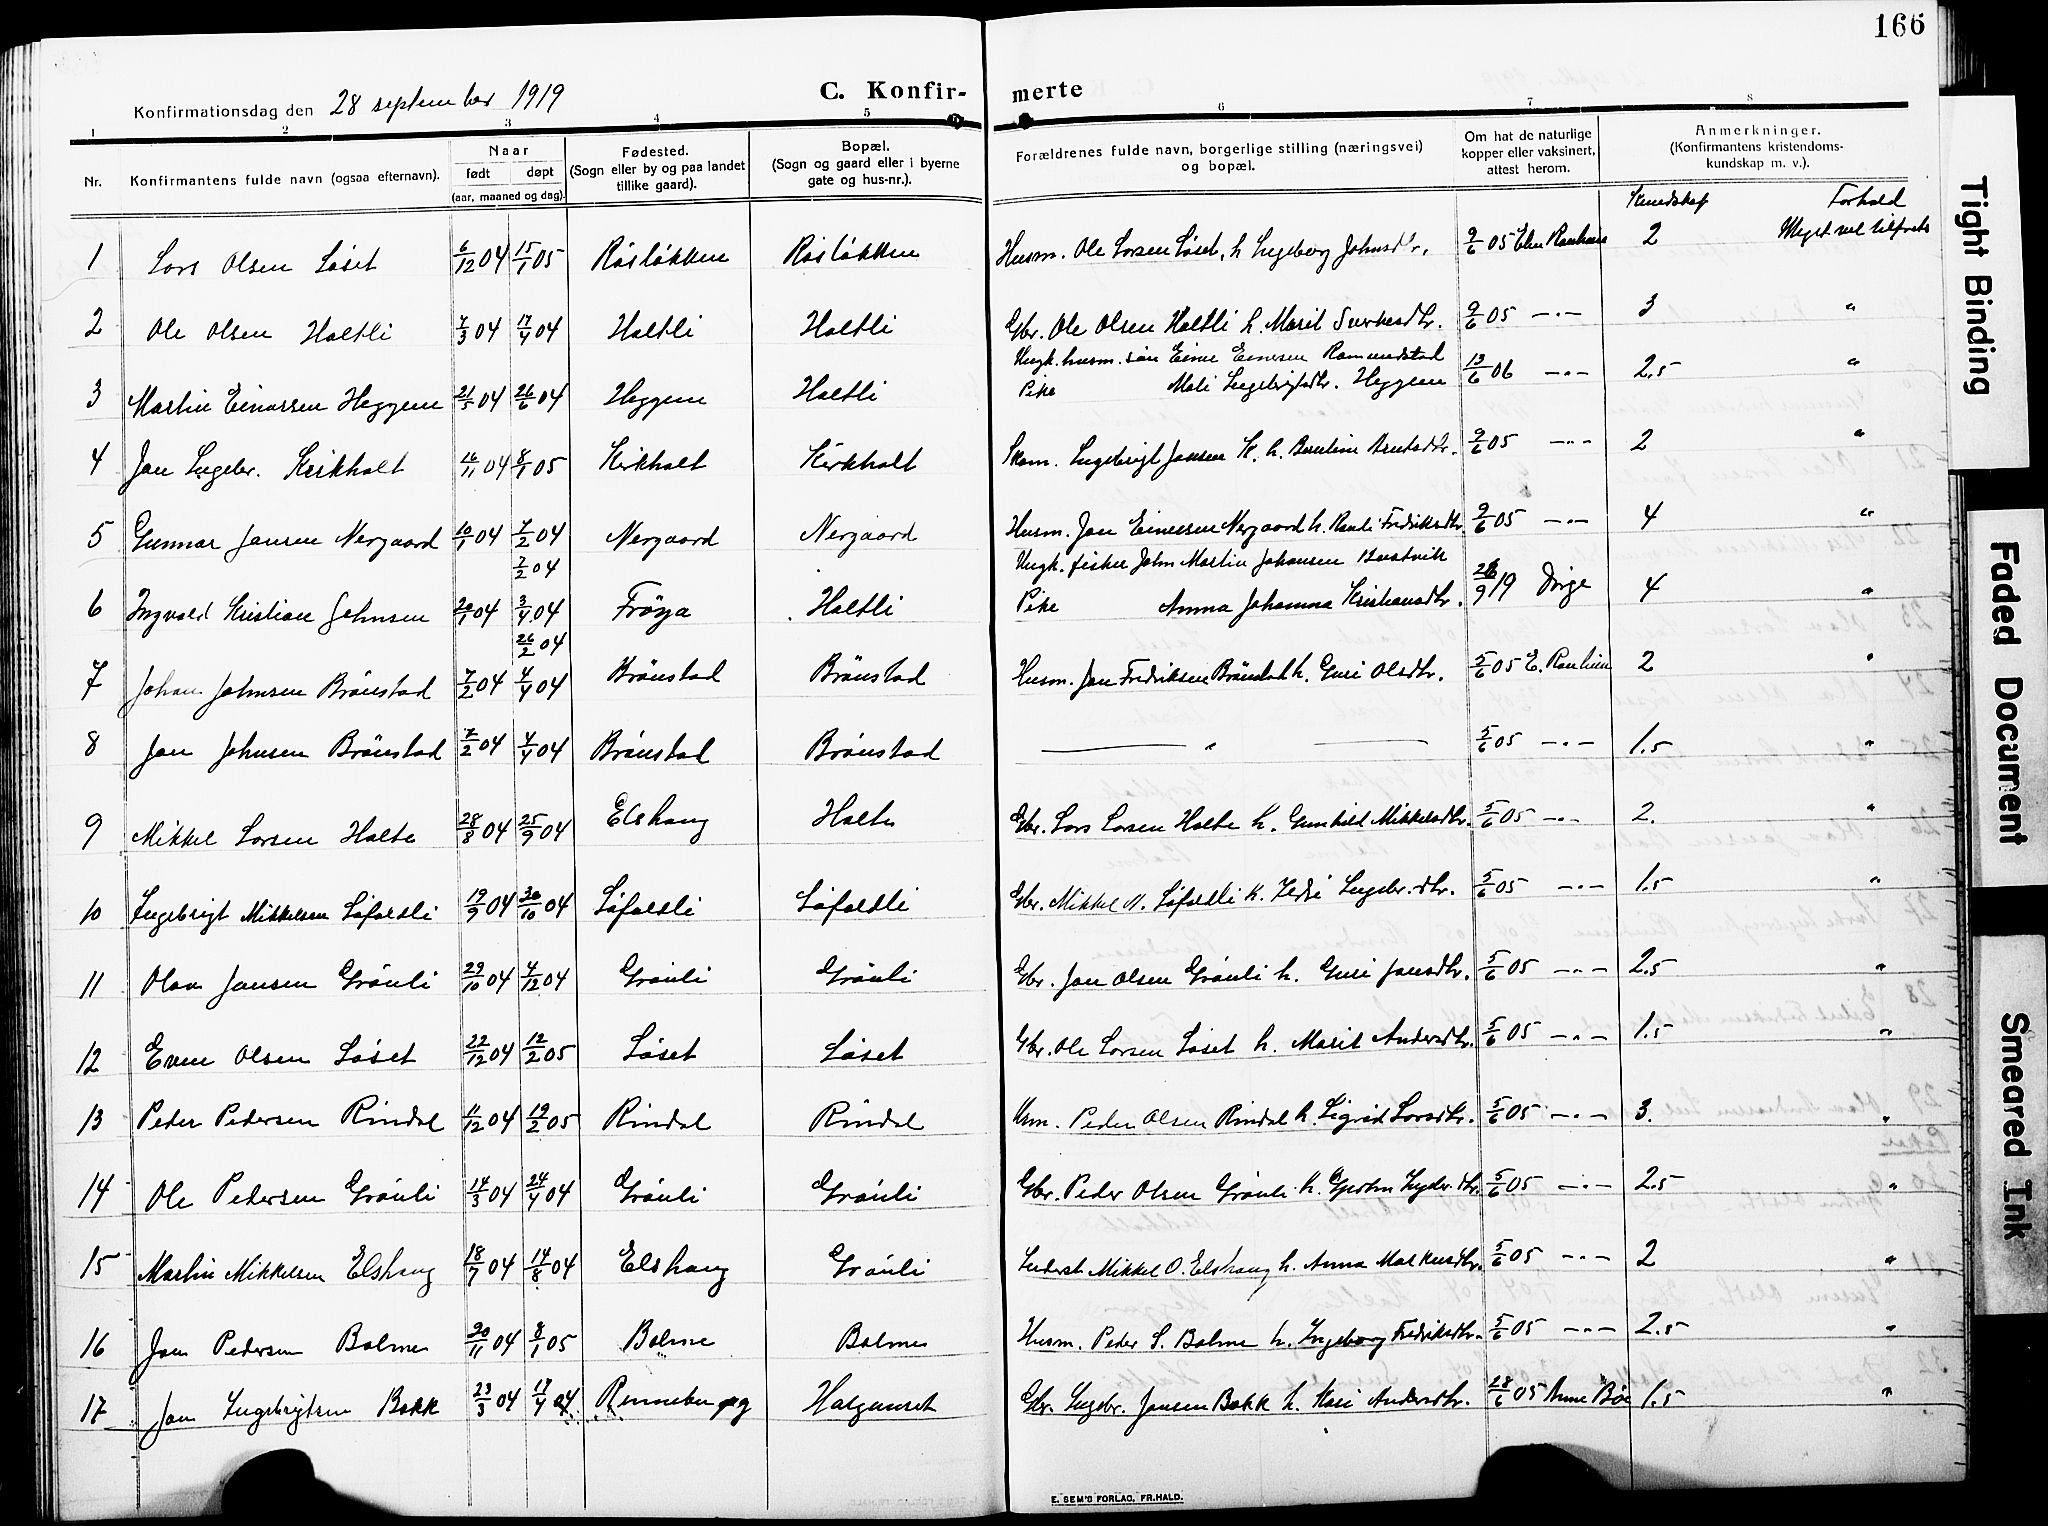 166
Konfirmationsdag den 28 september 1919
C. Konfir-merte
1 2 3 4 5 6 7 8
Nr. Konfirmantens fulde navn (ogsaa efternavn). Naar født døpt (aar, maaned og dag). Fødested. (Sogn eller by og paa landet tillike gaard). Bopæl. (Sogn og gaard eller i byerne gate og hus-nr.). Forældrenes fulde navn, borgerlige stilling (næringsvei) og bopæl. Om hat de naturlige kopper eller vaksinert, attest herom. Anmerkninger. (Konfirmantens kristendoms-kundskap m. v.).
Kundskap Forhold
1 Lars Olsen Løset 6/12 04 15/1 05 Røsløkken Røsløkken Husm. Ole Larsen Løset, h. Ingeborg Johnsdtr. 9/6 05 Elen Ranheim 2 Meget vel tilfreds
2 Ole Olsen Haltli 7/3 04 17/4 04 Haltli Haltli Gbr. Ole Olsen Haltli h. Marit Siversdtr. 9/6 05 —"— 3 "
3 Martin Einarsen Heggem 21/5 04 26/6 04 Heggem Haltli Ungk. husm. søn Einar Einarsen Romundstad
Pike Mali Ingebrigtsdtr. Heggem 13/6 06 —"— 2.5 "
4 Jon Ingebr. Kirkholt 16/11 04 8/1 05 Kirkholt Kirkholt Skom. Ingebrigt Jonsen K. h. Berntine Berntsdtr. 9/6 05 —"— 2 "
5 Gunnar Jonsen Nergaard 10/1 04 7/2 04 Nergaard Nergaard Husm. Jon Einarsen Nergaard h. Randi Fredriksdtr. 9/6 05 —"— 4 "
7/2 04
6 Ingvald Kristian Johnsen 20/1 04 3/4 04 Frøya Haltli Ungk. fisker John Martin Johansen Bustvik
Pike Anna Johanna Kristiansdtr. 26/9 19 Dörge 4 "
26/2 04
7 Johan Johnsen Brønstad 7/2 04 4/4 04 Brønstad Brønstad Husm. Jon Fredriksen Brønstad h. Guri Olsdtr. 5/6 05 E. Ranheim 2 "
8 Jon Johnsen Brønstad 7/2 04 4/4 04 Brønstad Brønstad — " — 5/6 05 —"— 1.5 "
9 Mikkel Larsen Holte 28/8 04 25/9 04 Elshaug Holte Gbr. Lars Larsen Holte h. Gunhild Mikkelsdtr. 5/6 05 —"— 2. "
10 Ingebrigt Mikkelsen Løfaldli 19/9 04 30/10 04 Løfaldli Løfaldli Gbr. Mikkel N. Løfaldli h. Ildri Ingebr.dtr. 5/6 05 —"— 1.5 "
11 Olav Jonsen Grønli 29/10 04 4/12 04 Grønli Grønli Gbr. Jon Olsen Grønli h. Guri Jonsdtr. 5/6 05 —"— 2.5 "
12 Even Olsen Løset 22/12 04 12/2 05 Løset Løset Gbr. Ole Larsen Løset h. Marit Andersdtr. 5/6 05 —"— 1.5 "
13 Peder Pedersen Rindal 11/12 04 19/2 05 Rindal Rindal Peder Olsen Rindal h. Sigrid Larsdtr. 5/6 05 —"— 3. "
14 Ole Pedersen Grønli 14/3 04 24/4 04 Grønli Grønli Gbr. Peder Olsen Grønli h. Gjertru Ingebr.dtr. 5/6 05 —"— 2.5 "
15 Martin Mikkelsen Elshaug 18/7 04 14/8 04 Elshaug Grønli Inderst Mikkel O. Elshaug h. Anna Malkusdtr. 5/6 05 —"— 2 "
16 Jon Pedersen Bolme 30/11 04 8/1 05 Bolme Bolme Husm. Peder S. Bolme h. Ingeborg Fredriksdtr. 5/6 05 —"— 2.5 "
17 Jon Ingebrigtsen Bakk 23/3 04 17/4 04 Rennebu Halgunset Gbr. Ingebr. Jonsen Bakk h. Kari Andersdtr. 28/6 05 Anne Bøe 1.5 "
E. SEM'S FORLAG, FR.HALD.
Tight Binding
Faded Document
Smeared Ink